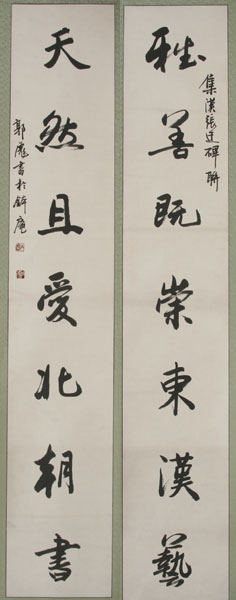 雅善既崇東漢藝
集漢張遷碑聯
天然且愛北朝書
郭彪書於鋅庵